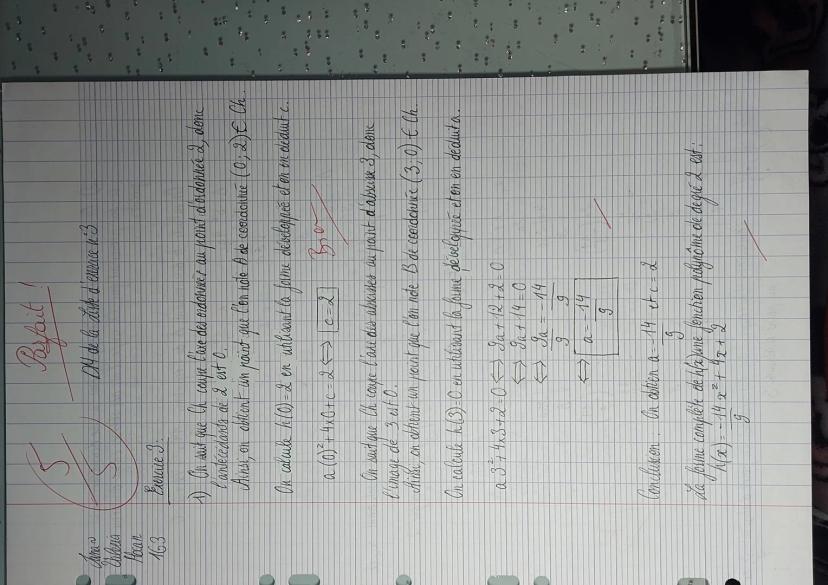 Parfait !
5
5
DM de la liste d'exercice n°3
163
Exercice 9:
1) On sait que Ch coupe l'axe des ordonnées au point d'ordonnée 2, donc
l'antécédants de 2 est 0.
Ainsi, on obtient un point que l'on note A de coordonnée (0;2) ∈ Ch.
On calcule h(0)=2 en utilisant la forme développée et on en déduit c.
a(0)²+4×0+c=2 <=> c=2
Bien
On sait que Ch coupe l'axe des abscisses au point d'abscisse 3, donc
l'image de 3 est 0.
Ainsi, on obtient un point que l'on note B de coordonnée (3;0) ∈ Ch.
On calcule h(3)=0 en utilisant la forme développée et on en déduit a.
a3²+4×3+2=0 <=> 9a+12+2=0
<=> 9a+14=0
<=> 9a/9 = -14/9
<=> a=-14/9
Conclusion: On obtien a=-14/9 et c=2
La forme complète de h(x) une fonction polynôme de degré 2 est:
h(x)=-14/9x²+4x+2